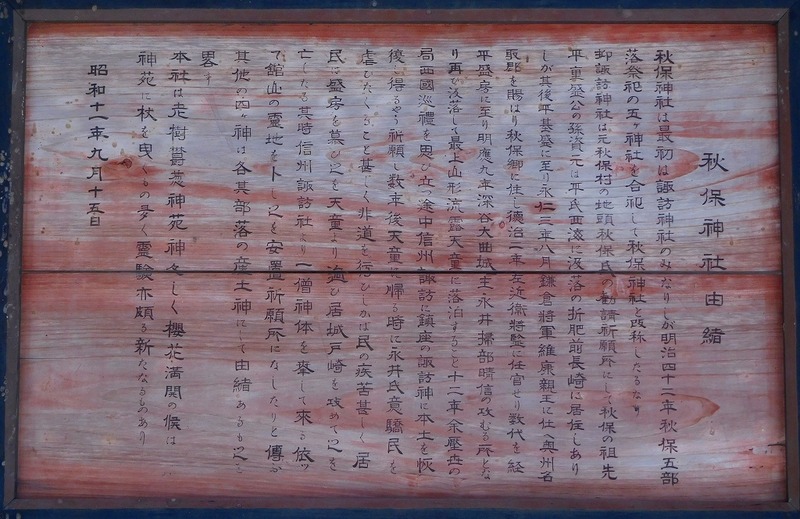 秋保神社由緒
秋保神社は最初は諏訪神社のみなりしが明治四十二年秋保五部
落祭祀の五ヶ神社を合祀して秋保神社と改称したるなり
抑諏訪神社は元秋保村の地頭秋保氏の勧請祈願所にして秋保の祖先
平重盛公の孫資元は平氏西海に没落の折肥前長崎に居住しあり
しが其後平基盛に至り永仁二年八月鎌倉将軍維康親王に仕へ奥州名
取郡を賜はり秋保郷に住し徳治二年左近衛将監に任官せり数代を経
平盛房に至り明應九年深谷大曲城主永井掃部晴信の攻むる所とな
り再び没落して最上山形流露天童に落泊すること十二年余歴世の
局西國巡禮を思ひ立つ途中信州諏訪に鎮座の諏訪神に本土を恢
復し得るやう祈願し数年後天童に帰る時に永井氏意驕民を
虐ひたぐること甚しく非道を行ひしかば民の疾苦甚しく居
民は盛房を慕ひ之を天童より迎ひ居城戸崎を攻めて之を
亡したる其時信州諏訪社より一僧神体を奉して来る依つ
て館山の霊地を卜し之を安置祈願所になしたりと傳ふ
其他の四ヶ神は各其部落の産土神にして由緒あるも之を
畧す
本社は老樹鬱葱神苑神々しく櫻花満開の候は
神苑に杖を曳くもの多く霊験亦頗る新たなるものあり
昭和十一年九月十五日